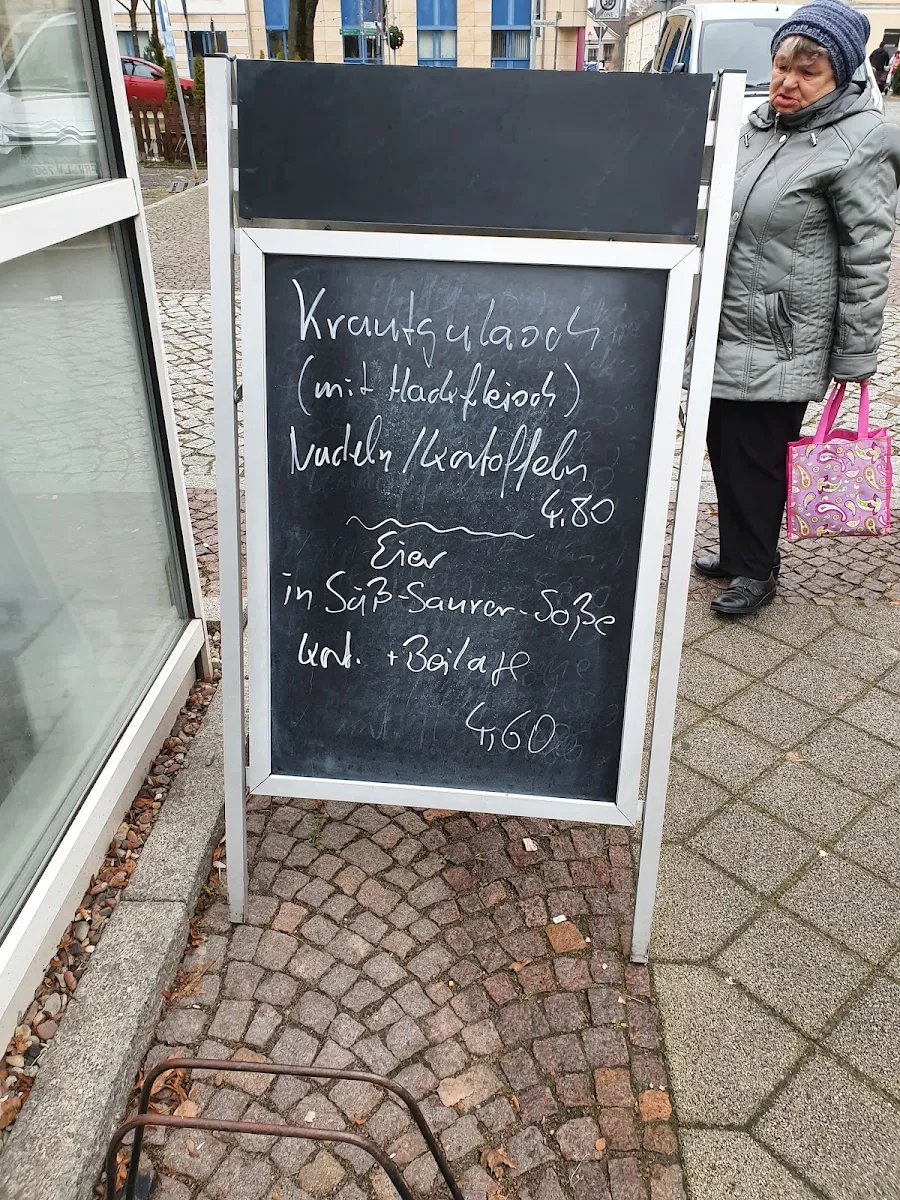 Krautgulasch
(mit Hackfleisch)
Nudeln/Kartoffeln
4,80
Eier
in Süß-Saurer-Soße
Kart. + Beilage
4,60